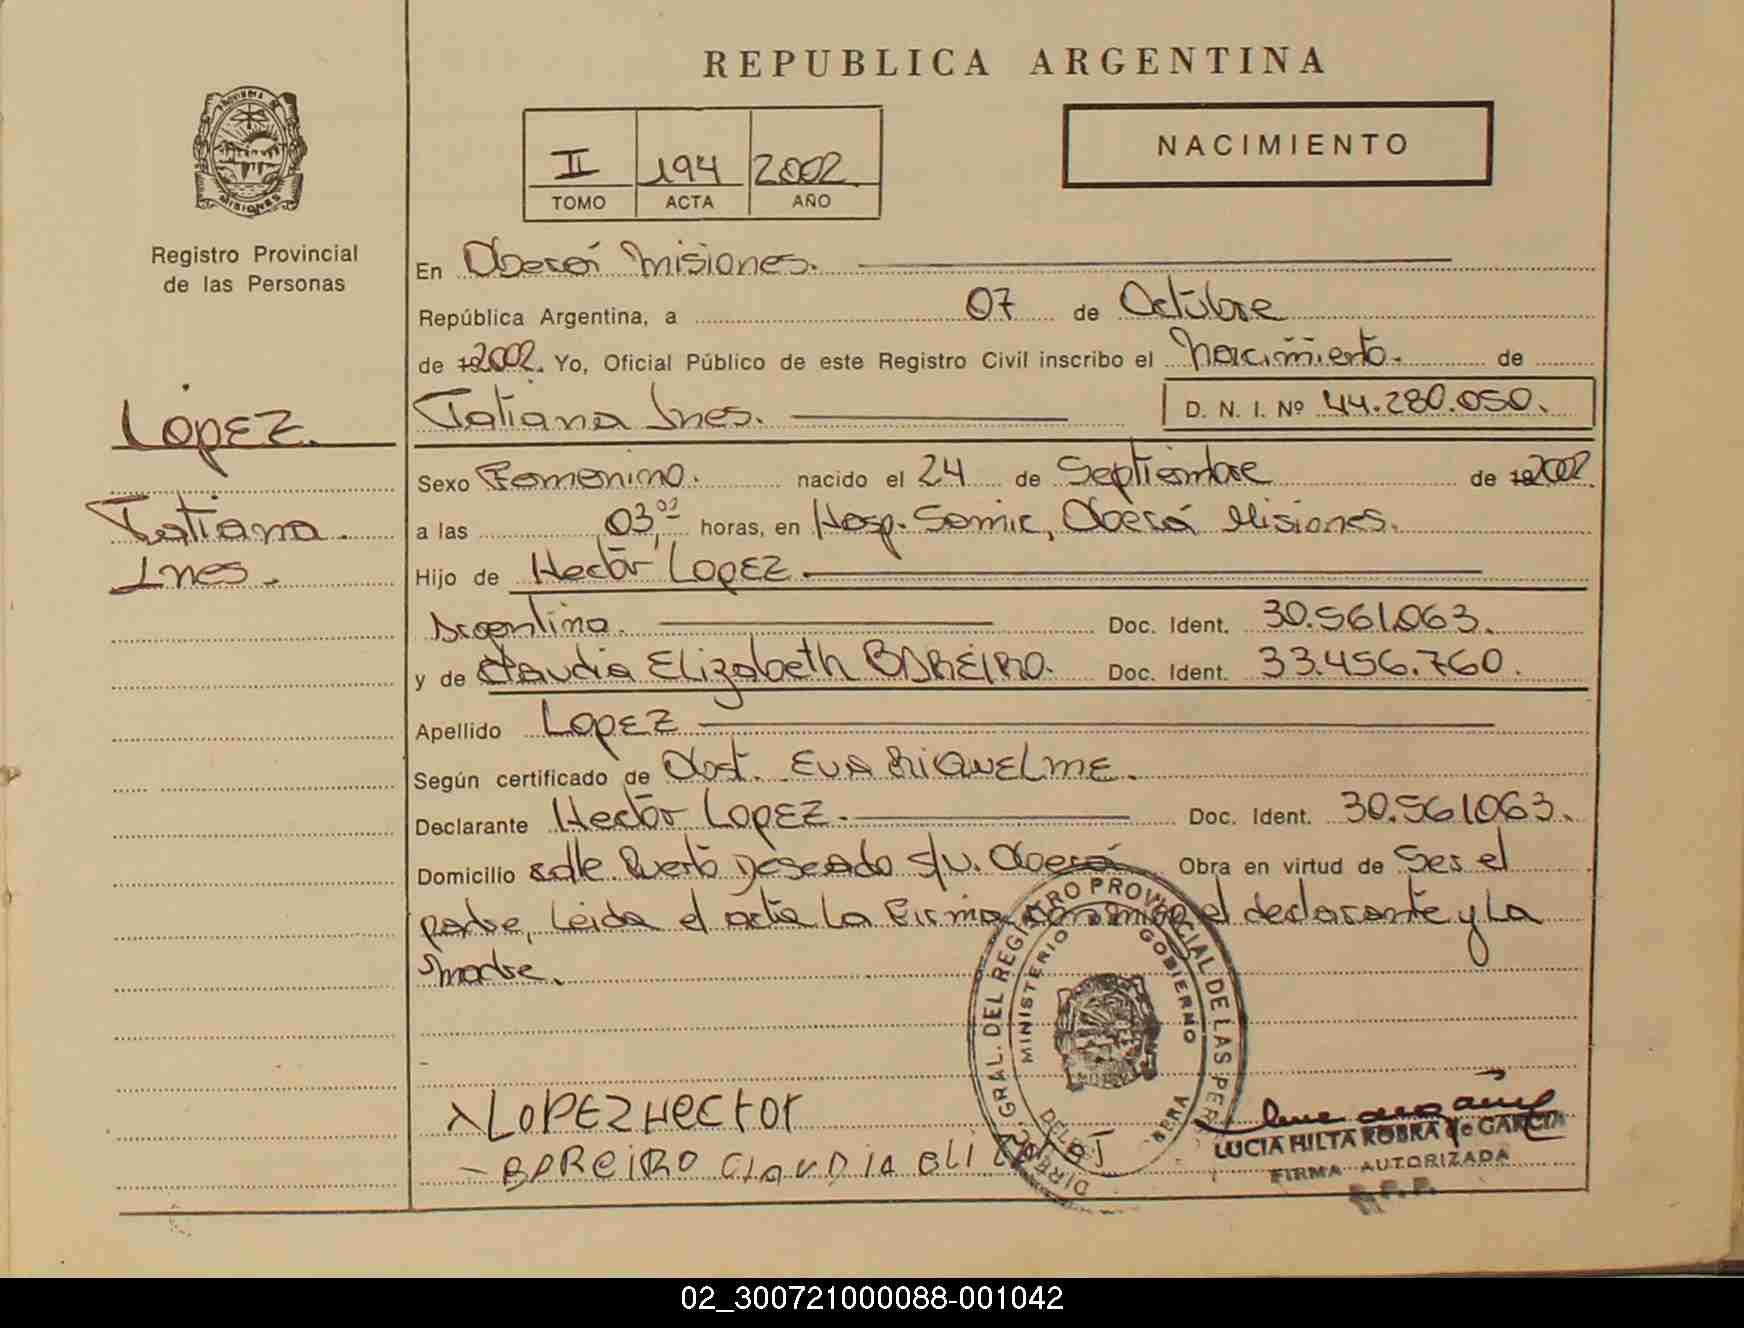 REPUBLICA ARGENTINA
PROVINCIA DE
MISIONES
Registro Provincial
de las Personas
II 194 2002
TOMO ACTA AÑO
NACIMIENTO
En Oberá Misiones.
República Argentina, a 07 de Octubre
de 192002. Yo, Oficial Público de este Registro Civil inscribo el Nacimiento. de
Tatiana Ines. D. N. I. Nº 44.280.050.
LOPEZ.
Tatiana.
Ines.
Sexo Femenino. nacido el 24 de Septiembre de 192002.
a las 03,00 horas, en Hosp. Samic, Oberá Misiones.
Hijo de Hector LOPEZ
Argentino. Doc. Ident. 30.561.063.
y de Claudia Elizabeth BAREIRO. Doc. Ident. 33.456.760.
Apellido LOPEZ
Según certificado de Obst. EVA RIQUELME.
Declarante Hector LOPEZ. Doc. Ident. 30.561.063.
Domicilio calle Puerto Deseado s/n. Oberá Obra en virtud de Ser el
padre, Leida el acta La Firma conmigo el declarante y La
madre.
DIREC. GRAL. DEL REGISTRO PROVINCIAL DE LAS PER
MINISTERIO DE GOBIERNO
LOPEZ HECTOR
BAREIRO CLAUDIA ELIZ
LUCIA HILTA ROBRA de GARCIA
FIRMA AUTORIZADA
R.P.P.
02_300721000088-001042